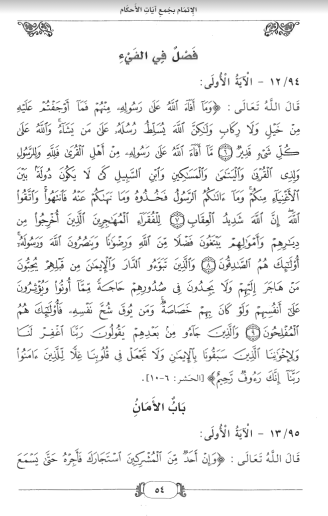 الإتمام بجمع آيات الأحكام
فَصْلٌ فِي الْفَيْءِ
١٢/٩٤ - الْآيَةُ الْأُولَى:
قَالَ اللَّهُ تَعَالَى : ﴿وَمَا أَفَاءَ اللَّهُ عَلَىٰ رَسُولِهِ مِنْهُمْ فَمَا أَوْجَفْتُمْ عَلَيْهِ
مِنْ خَيْلٍ وَلَا رِكَابٍ وَلَٰكِنَّ اللَّهَ يُسَلِّطُ رُسُلَهُ عَلَىٰ مَن يَشَاءُ ۚ وَاللَّهُ عَلَىٰ
كُلِّ شَيْءٍ قَدِيرٌ ٦ مَّا أَفَاءَ اللَّهُ عَلَىٰ رَسُولِهِ مِنْ أَهْلِ الْقُرَىٰ فَلِلَّهِ وَلِلرَّسُولِ
وَلِذِي الْقُرْبَىٰ وَالْيَتَامَىٰ وَالْمَسَاكِينِ وَابْنِ السَّبِيلِ كَيْ لَا يَكُونَ دُولَةً بَيْنَ
الْأَغْنِيَاءِ مِنكُمْ ۚ وَمَا آتَاكُمُ الرَّسُولُ فَخُذُوهُ وَمَا نَهَاكُمْ عَنْهُ فَانتَهُوا ۚ وَاتَّقُوا
اللَّهَ ۖ إِنَّ اللَّهَ شَدِيدُ الْعِقَابِ ٧ لِلْفُقَرَاءِ الْمُهَاجِرِينَ الَّذِينَ أُخْرِجُوا مِن
دِيَارِهِمْ وَأَمْوَالِهِمْ يَبْتَغُونَ فَضْلًا مِّنَ اللَّهِ وَرِضْوَانًا وَيَنصُرُونَ اللَّهَ وَرَسُولَهُ ۚ
أُولَٰئِكَ هُمُ الصَّادِقُونَ ٨ وَالَّذِينَ تَبَوَّءُو الدَّارَ وَالْإِيمَانَ مِن قَبْلِهِمْ يُحِبُّونَ
مَنْ هَاجَرَ إِلَيْهِمْ وَلَا يَجِدُونَ فِي صُدُورِهِمْ حَاجَةً مِّمَّا أُوتُوا وَيُؤْثِرُونَ
عَلَىٰ أَنفُسِهِمْ وَلَوْ كَانَ بِهِمْ خَصَاصَةٌ ۚ وَمَن يُوقَ شُحَّ نَفْسِهِ فَأُولَٰئِكَ هُمُ
الْمُفْلِحُونَ ٩ وَالَّذِينَ جَاءُو مِن بَعْدِهِمْ يَقُولُونَ رَبَّنَا اغْفِرْ لَنَا
وَلِإِخْوَانِنَا الَّذِينَ سَبَقُونَا بِالْإِيمَانِ وَلَا تَجْعَلْ فِي قُلُوبِنَا غِلًّا لِّلَّذِينَ آمَنُوا
رَبَّنَا إِنَّكَ رَءُوفٌ رَّحِيمٌ﴾ [الحشر: ٦-١٠].
بَابُ الْأَمَانِ
١٣/٩٥ - الْآيَةُ الْأُولَى:
قَالَ اللَّهُ تَعَالَى : ﴿وَإِنْ أَحَدٌ مِّنَ الْمُشْرِكِينَ اسْتَجَارَكَ فَأَجِرْهُ حَتَّىٰ يَسْمَعَ
٥٤